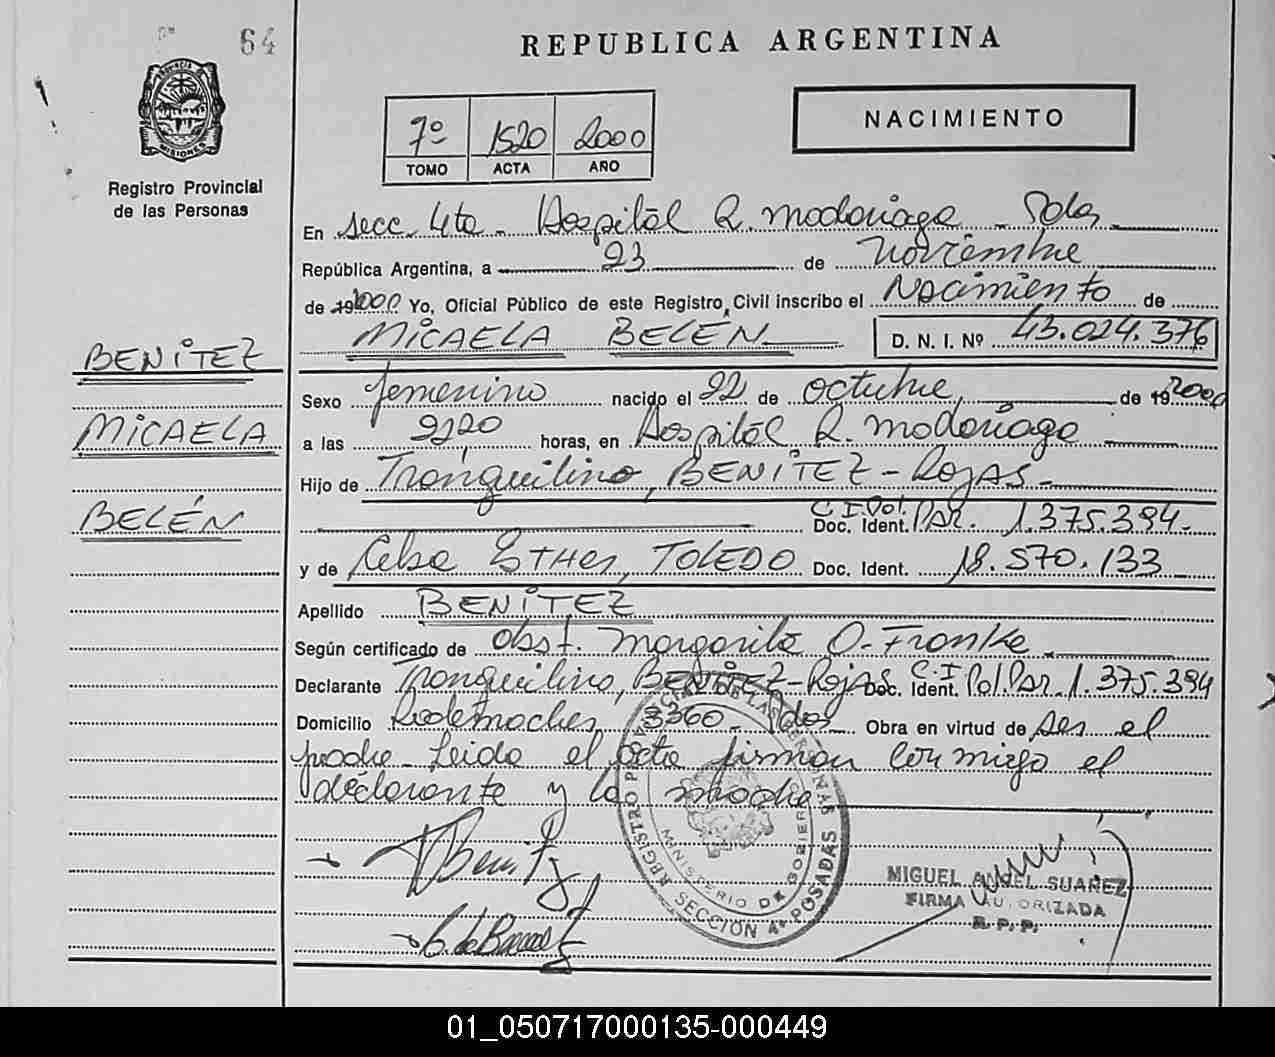 64
REPUBLICA ARGENTINA
PROVINCIA DE MISIONES
Registro Provincial
de las Personas
7º 1520 2000
TOMO ACTA AÑO
NACIMIENTO
En secc. 4ta - Hospital R. Madariaga - Pdas
República Argentina, a 23 de Noviembre
de 19 2000 Yo, Oficial Público de este Registro Civil inscribo el Nacimiento de
MICAELA BELÉN D. N. I. Nº 43.024.376
BENITEZ
MICAELA
BELÉN
Sexo femenino nacido el 22 de octubre de 19 2000
a las horas, en Hospital R. Madariaga
Hijo de Tranquilino, BENITEZ - ROJAS -
C.I.Pol.
Doc. Ident. PAR. 1.375.394-
y de Celsa ESTHer, TOLEDO Doc. Ident. 18.570.133
Apellido BENITEZ
Según certificado de obst. Margarita O. Franke
Declarante Tranquilino, BENITEZ - Rojas Doc. Ident. C.I. Pol. Par. 1.375.394
Domicilio 3360 - Pdas Obra en virtud de ser el
padre - Leida el acta firman conmigo el
declarante y la madre
REGISTRO PROVINCIAL DE LAS PERSONAS
MINISTERIO DE GOBIERNO
SECCIÓN 4ª POSADAS
MIGUEL ANGEL SUAREZ
FIRMA AUTORIZADA
R. P. P.
01_050717000135-000449